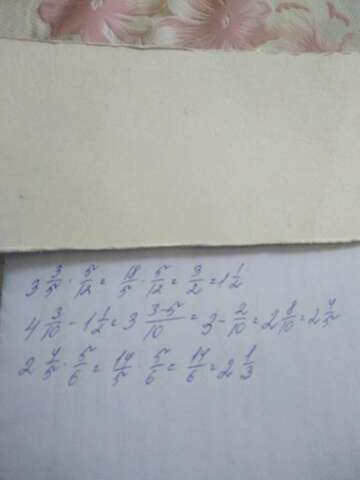 3 3/5 · 5/12 = 18/5 · 5/12 = 3/2 = 1 1/2
4 3/10 - 1 1/2 = 3 3-5/10 = 3 - 2/10 = 2 8/10 = 2 4/5
2 4/5 · 5/6 = 14/5 · 5/6 = 14/6 = 2 1/3